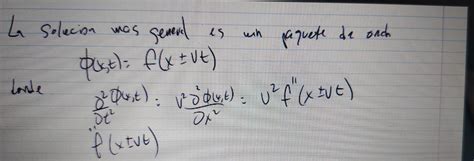 La solucion mas general es un paquete de onda
φ(x,t) = f(x ± vt)
donde
∂²φ(x,t)/∂t² = v² ∂²φ(x,t)/∂x² = v² f''(x ± vt)
f''(x ± vt)